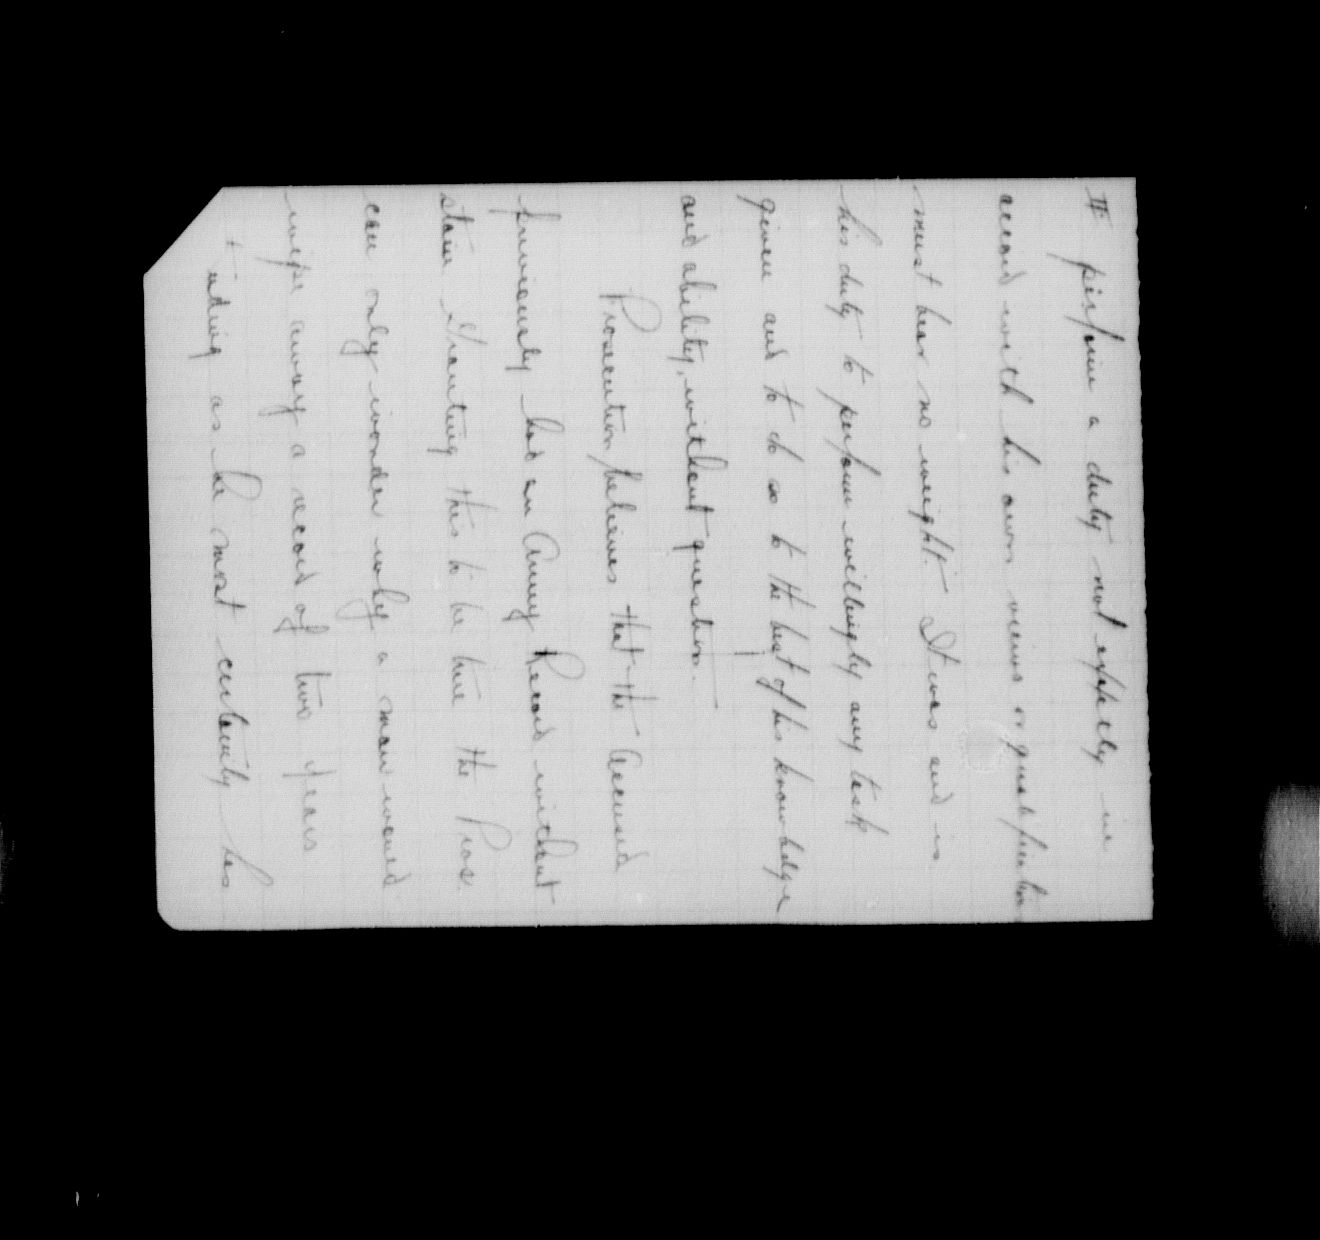 II perform a duty not exactly in
accord with his own views or
must bear no weight. It was and is
his duty to perform willingly any task
given and to do so to the best of his knowledge
and ability, without question.
Prosecution believes that the Accused
previously had an Army Record without
stain. Granting this to be true the Pros.
can only wonder why a man would
wipe away a record of two years
as he most certainly has